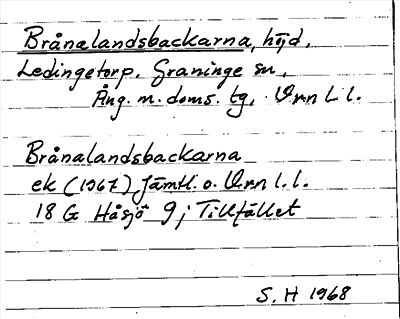 Brånalandsbackarna, höjd,
Ledingetorp. Graninge sn,
Ång. m. doms. tg, V.nn L l.
Brånalandsbackarna
ek (1967) Jämtl. o. V.nn l. l.
18 G Håsjö 9 j Tillfället
S. H 1968